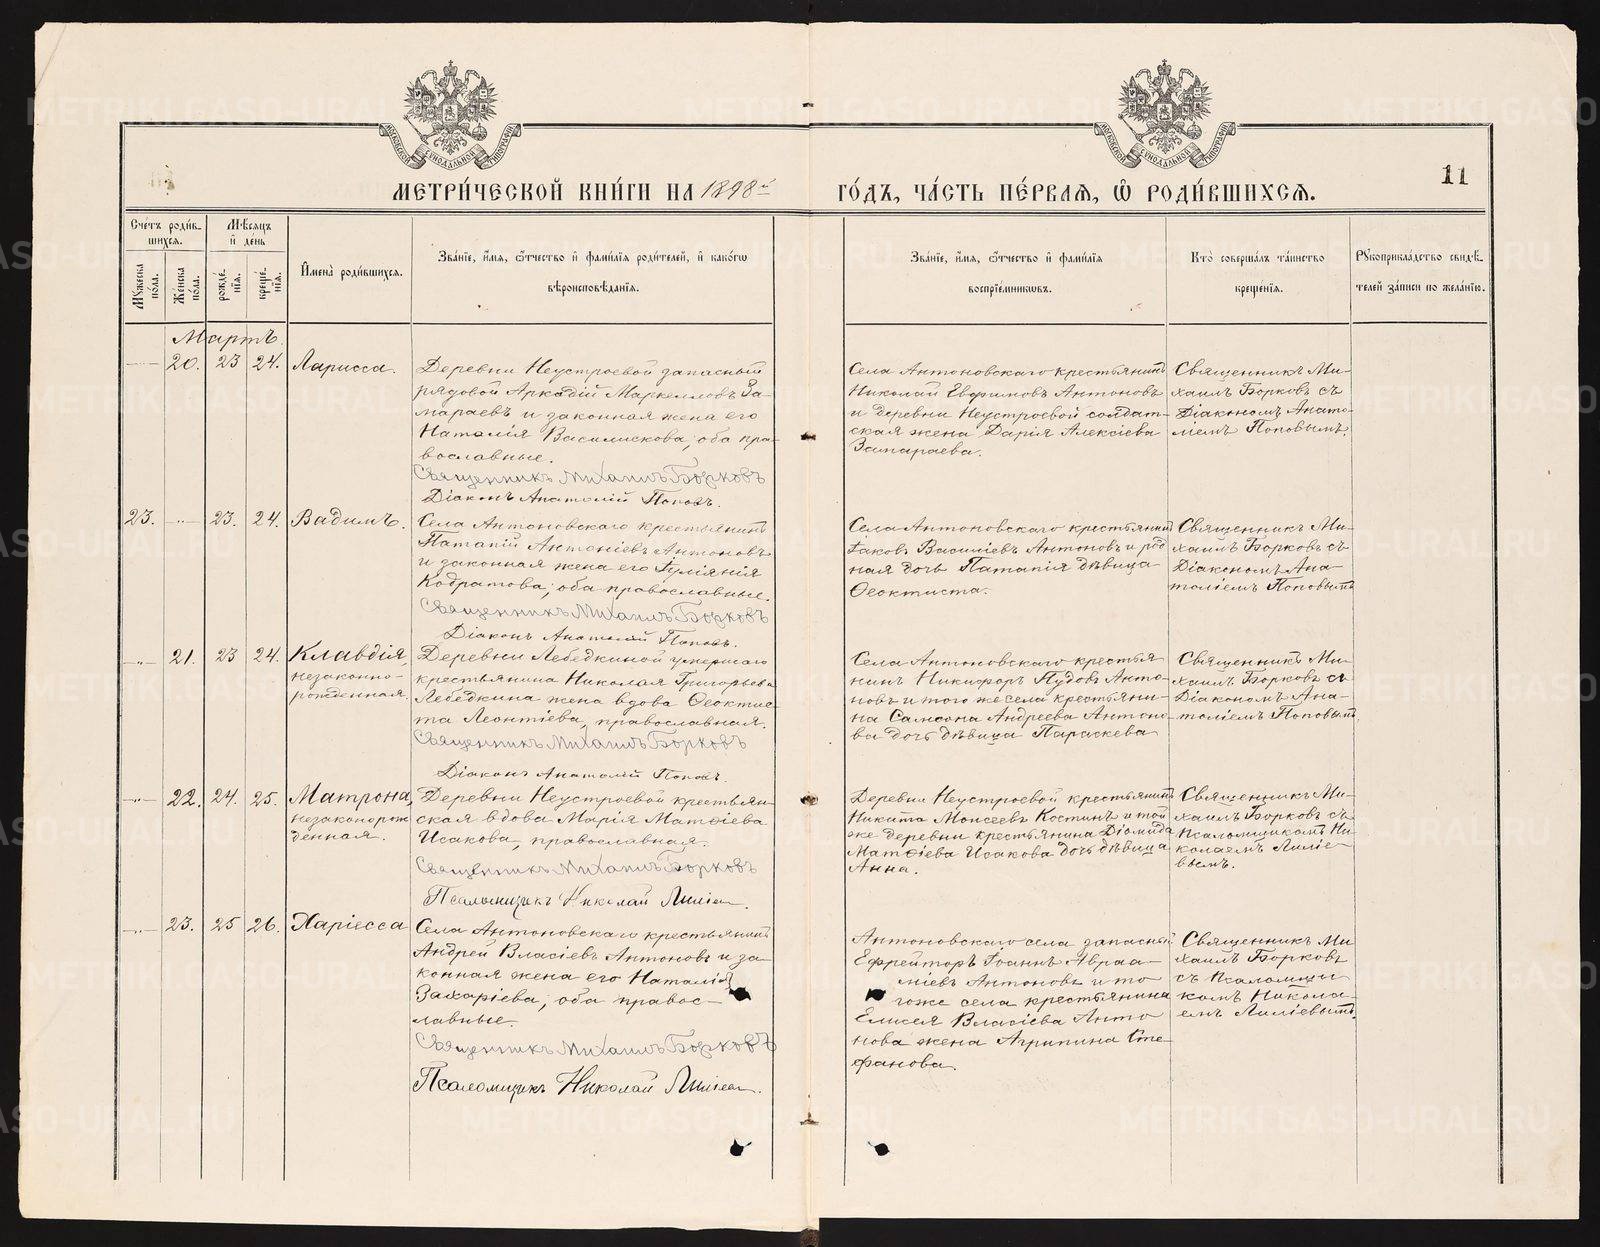 МЕТРИ́ЧЕСКОЙ КНИ́ГИ НА 1898й ГО́ДЪ, ЧА́СТЬ ПЕ́РВАѦ, Ѿ РОДИ́ВШИХСѦ.
11
Сче́тъ роди́вшихсѧ.
Мѣ́сѧцъ и҆ де́нь
Мꙋ́жеска по́ла.
Же́нска по́ла.
рожде́нїѧ.
креще́нїѧ.
И҆мена̀ роди́вшихсѧ.
Зва́нїе, и҆́мѧ, ѻ҆́тчество и҆ фами́лїѧ роди́телей, и҆ како́гѡ
вѣроисповѣ́данїѧ.
Зва́нїе, и҆́мѧ, ѻ҆́тчество и҆ фами́лїѧ
воспрїе́мниковъ.
Кто̀ соверша́лъ та́инство
креще́нїѧ.
Рꙋкоприкла́дство свидѣ́телей за́писи по жела́нїю.
Мартъ.
20. 23 24. Ларисса.
Деревни Неустроевой запасный
рядовой Аркадій Маркелловъ За-
мараевъ и законная жена его
Наталія Василискова, оба пра-
вославные.
Священникъ Михаилъ Борковъ
Діаконъ Анатолій Поповъ.
Села Антоновскаго крестьянинъ
Николай Евфимовъ Антоновъ
и деревни Неустроевой солдат-
ская жена Дарія Алексіева
Замараева.
Священникъ Ми-
хаилъ Борковъ съ
Діакономъ Анато-
ліемъ Поповымъ.
23. -"- 23. 24. Вадимъ.
Села Антоновскаго крестьянинъ
Патапій Антоніевъ Антоновъ
и законная жена его Іуліянія
Кодратова, оба православные.
Священникъ Михаилъ Борковъ
Діаконъ Анатолій Поповъ.
Села Антоновскаго крестьянинъ
Іаковъ Василіевъ Антоновъ и род
ная дочь Патапія дѣвица
Ѳеоктиста.
Священникъ Ми-
хаилъ Борковъ съ
Діакономъ Ана-
толіемъ Поповымъ
-"- 21. 23 24. Клавдія,
незаконно-
рожденная
Деревни Лебедкиной умершаго
крестьянина Николая Григорьева
Лебедкина жена вдова Ѳеоктис
та Леонтіева, православная.
Священникъ Михаилъ Борковъ
Діаконъ Анатолій Поповъ.
Села Антоновскаго крестья
нинъ Никифоръ Пудовъ Анто-
новъ и того же села крестьяни-
на Самсона Андреева Антоно-
ва дочь дѣвица Параскева
Священникъ Ми-
хаилъ Борковъ съ
Діакономъ Ана-
толіемъ Поповымъ
-"- 22. 24. 25. Матрона,
незаконорож
денная.
Деревни Неустроевой крестьян-
ская вдова Марія Матѳіева
Исакова, православная.
Священникъ Михаилъ Борковъ
Псаломщикъ Николай
Деревни Неустроевой крестьянинъ
Никита Моисеевъ Костинъ и той
же деревни крестьянина Діомида
Матѳіева Исакова дочь дѣвица
Анна.
Священникъ Ми-
хаилъ Борковъ съ
Псаломщикомъ Ни
колаемъ Лиліе-
вымъ.
-"- 23. 25 26. Харіесса
Села Антоновскаго крестьянинъ
Андрей Власіевъ Антоновъ и за
конная жена его Наталія
Захаріева, оба право-
лавные.
Священникъ Михаилъ Борковъ
Псаломщикъ Николай
Антоновскаго села запасный
Ефрейторъ Іоаннъ Авраа-
міевъ Антоновъ и то
гоже села крестьянина
Елисея Власіева Анто
нова жена Агрипина Сте
фанова.
Священникъ Ми
хаилъ Борковъ
съ Псаломщи
комъ Никола-
емъ Лиліевымъ.
METRIKI.GASO-URAL.RU